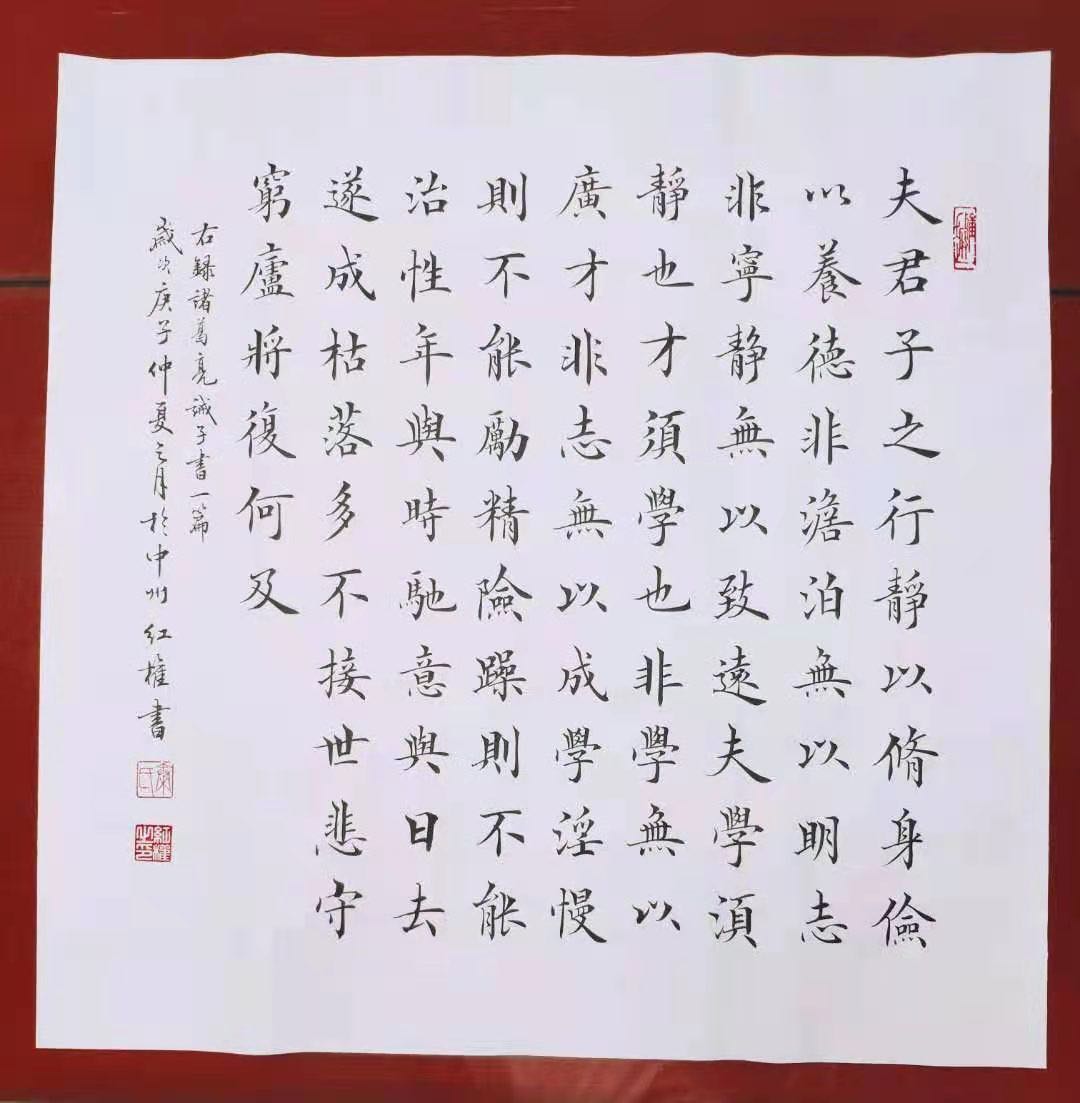 夫君子之行静以脩身儉
以養德非澹泊無以明志
非寧静無以致遠夫學須
静也才須學也非學無以
廣才非志無以成學淫慢
則不能勵精險躁則不能
治性年與時馳意與日去
遂成枯落多不接世悲守
窮廬將復何及
右録諸葛亮誡子書一篇
歲次庚子仲夏之月於中州紅權書